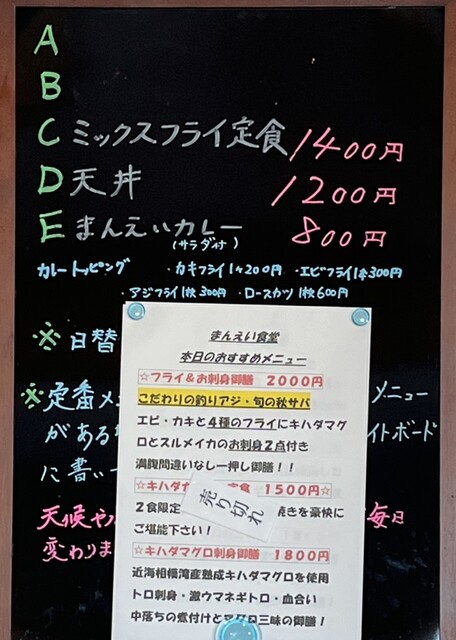 A
B
C ミックスフライ定食 1400円
D 天丼 1200円
E まんえいカレー 800円
(サラダ付)
カレートッピング ・カキフライ1ケ200円 ・エビフライ1本300円
・アジフライ1枚300円 ・ロースカツ1枚600円
※日替
※定番メ ニュー
がある イトボード
に書い
天候や 毎日
変わりま
まんえい食堂
本日のおすすめメニュー
☆フライ&お刺身御膳 2000円
こだわりの釣りアジ・旬の秋サバ
エビ・カキと4種のフライにキハダマグ
ロとスルメイカのお刺身2点付き
満腹間違いなし一押し御膳!!
☆キハダ 食 1500円☆
売り切れ
2食限定 焼きを豪快に
ご堪能下さい!
☆キハダマグロ刺身御膳 1800円
近海相模湾産熟成キハダマグロを使用
トロ刺身・激ウマネギトロ・血合い
中落ちの煮付けとマグロ三昧の御膳!